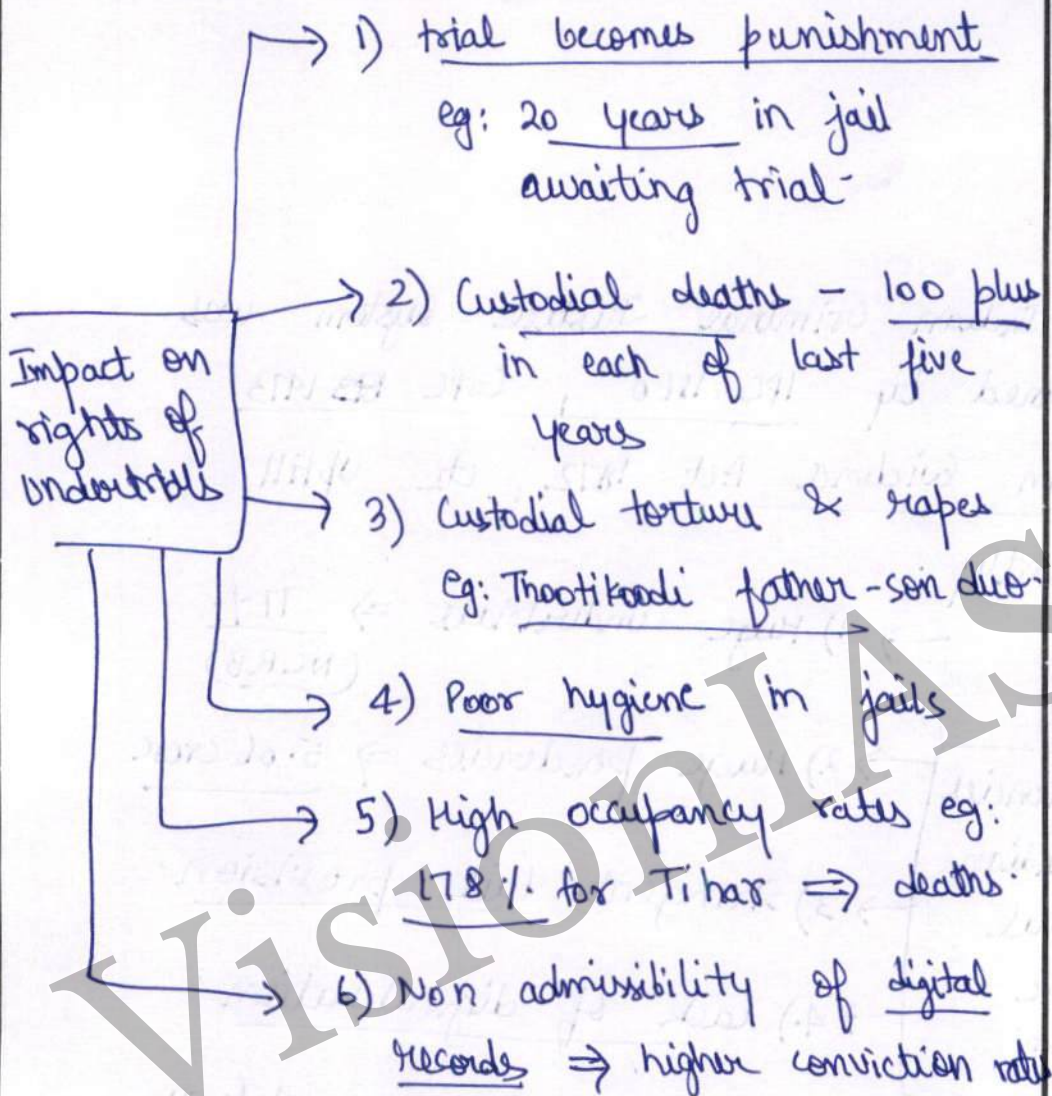 1) trial becomes punishment
eg: 20 years in jail
awaiting trial-
2) Custodial deaths - 100 plus
in each of last five
years
Impact on
rights of
undertrials
3) Custodial torture & rapes
eg: Thootikoodi father-son duo-
4) Poor hygiene in jails
5) High occupancy rates eg:
178% for Tihar ⇒ deaths.
6) Non admissibility of digital
records ⇒ higher conviction rates
VisionIAS